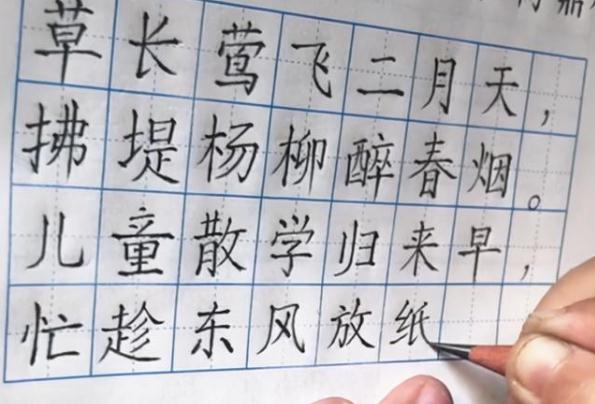 草长莺飞二月天，
拂堤杨柳醉春烟。
儿童散学归来早，
忙趁东风放纸